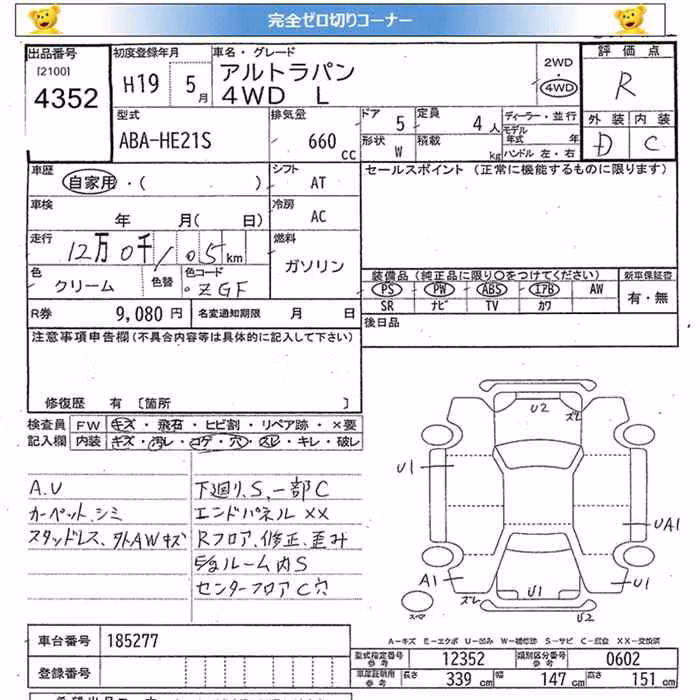 完全ゼロ切りコーナー
出品番号
[2100]
4352
初度登録年月
H19 5月
車名・グレード
アルトラパン
4WD L
2WD
・
4WD
評価点
R
外装 内装
D C
型式
ABA-HE21S
排気量
660
cc
ドア 5
形状 W
定員 4人
積載 kg
ディーラー・並行
モデル年式 年
ハンドル 左・右
車歴
自家用・( )
シフト
AT
セールスポイント (正常に機能するものに限ります)
車検
年 月( 日)
冷房
AC
走行
12万0千105km
燃料
ガソリン
色
クリーム
色替
色コード
ZGF
装備品(純正品に限り○をつけてください)
PS PW ABS エアB AW
SR ナビ TV カワ
新車保証書
有・無
R券 9,080円
名変通知期限 月 日
後日品
注意事項申告欄(不具合内容等は具体的に記入して下さい)
修復歴 有 〔箇所 〕
検査員 FW キズ・飛石・ヒビ割・リペア跡・×要
記入欄 内装 キズ・汚レ・コゲ・穴・スレ・キレ・破レ
A.U
カーペット、シミ
スタッドレス、外AWキズ
下廻り、S、一部C
エンドパネルXX
Rフロア、修正、歪み
ルーム内S
センターフロアC穴
U2
ズレ
U1
UA1
A1
U1
U1
ズレ
U2
スペア
A-キズ E-エクボ U-凹み W-補修跡 S-サビ C-腐食 XX-交換済
車台番号 185277
登録番号
型式指定番号 参考 12352
類別区分番号 参考 0602
車庫証明用 参考 長さ 339 cm 幅 147 cm 高さ 151 cm